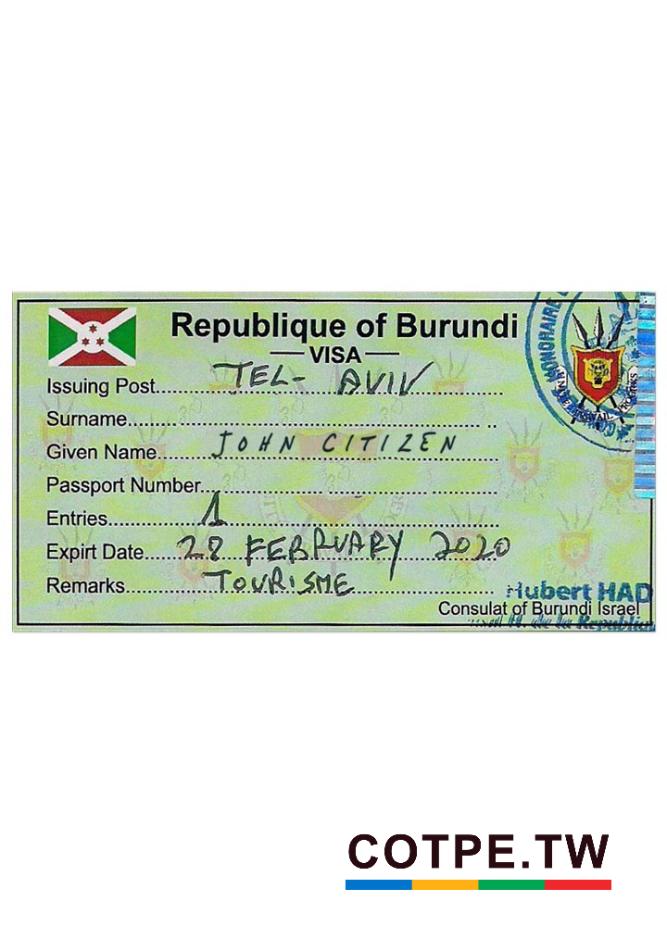 Republique of Burundi
VISA
Issuing Post TEL-AVIV
Surname
Given Name JOHN CITIZEN
Passport Number
Entries 1
Expirt Date 28 FEBRUARY 2020
Remarks TOURISME
HONORAIRE
Hubert HAD
Consulat of Burundi Israel
de la Republiqu
COTPE.TW